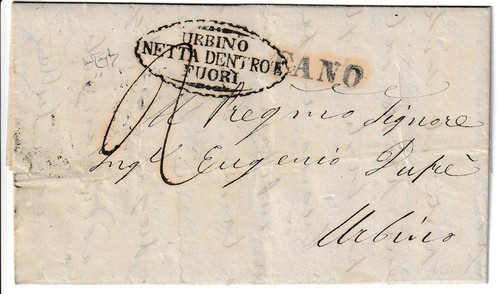 URBINO
NETTA DENTRO E
FUORI
FANO
Al Pregmo Signore
Ingre Eugenio Dupré
Urbino